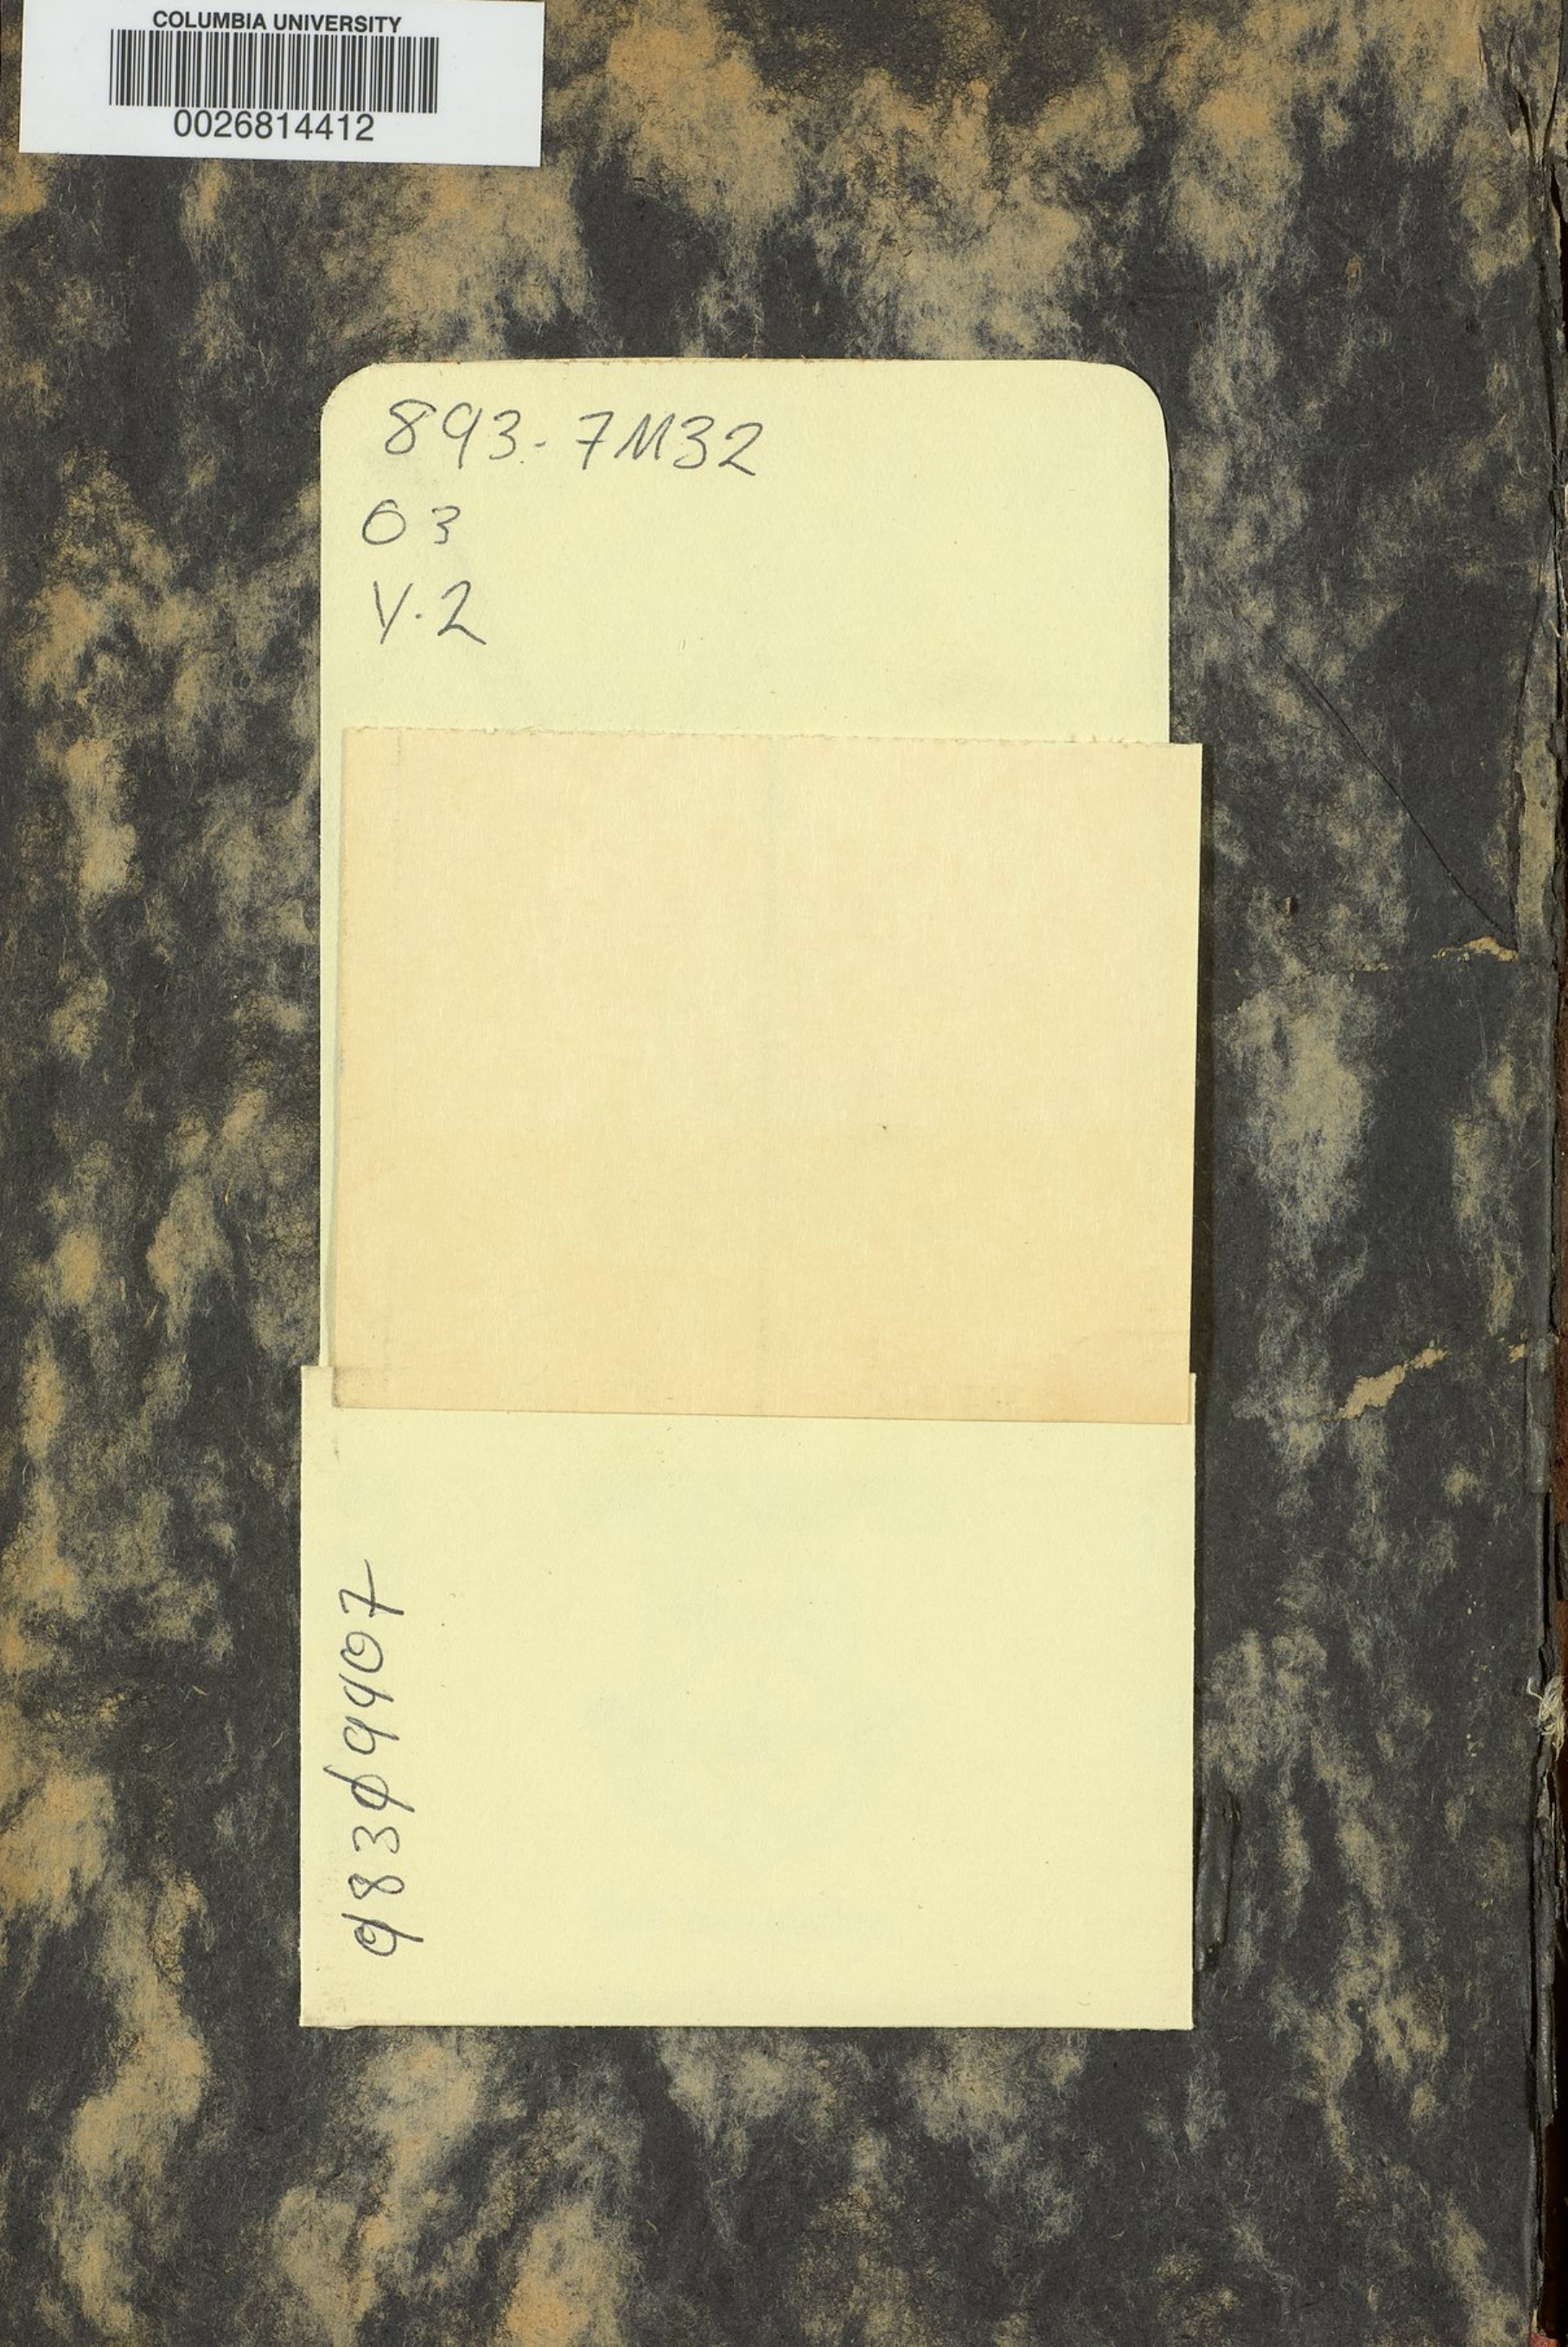 COLUMBIA UNIVERSITY
0026814412
893.7M32
03
V.2
98309907